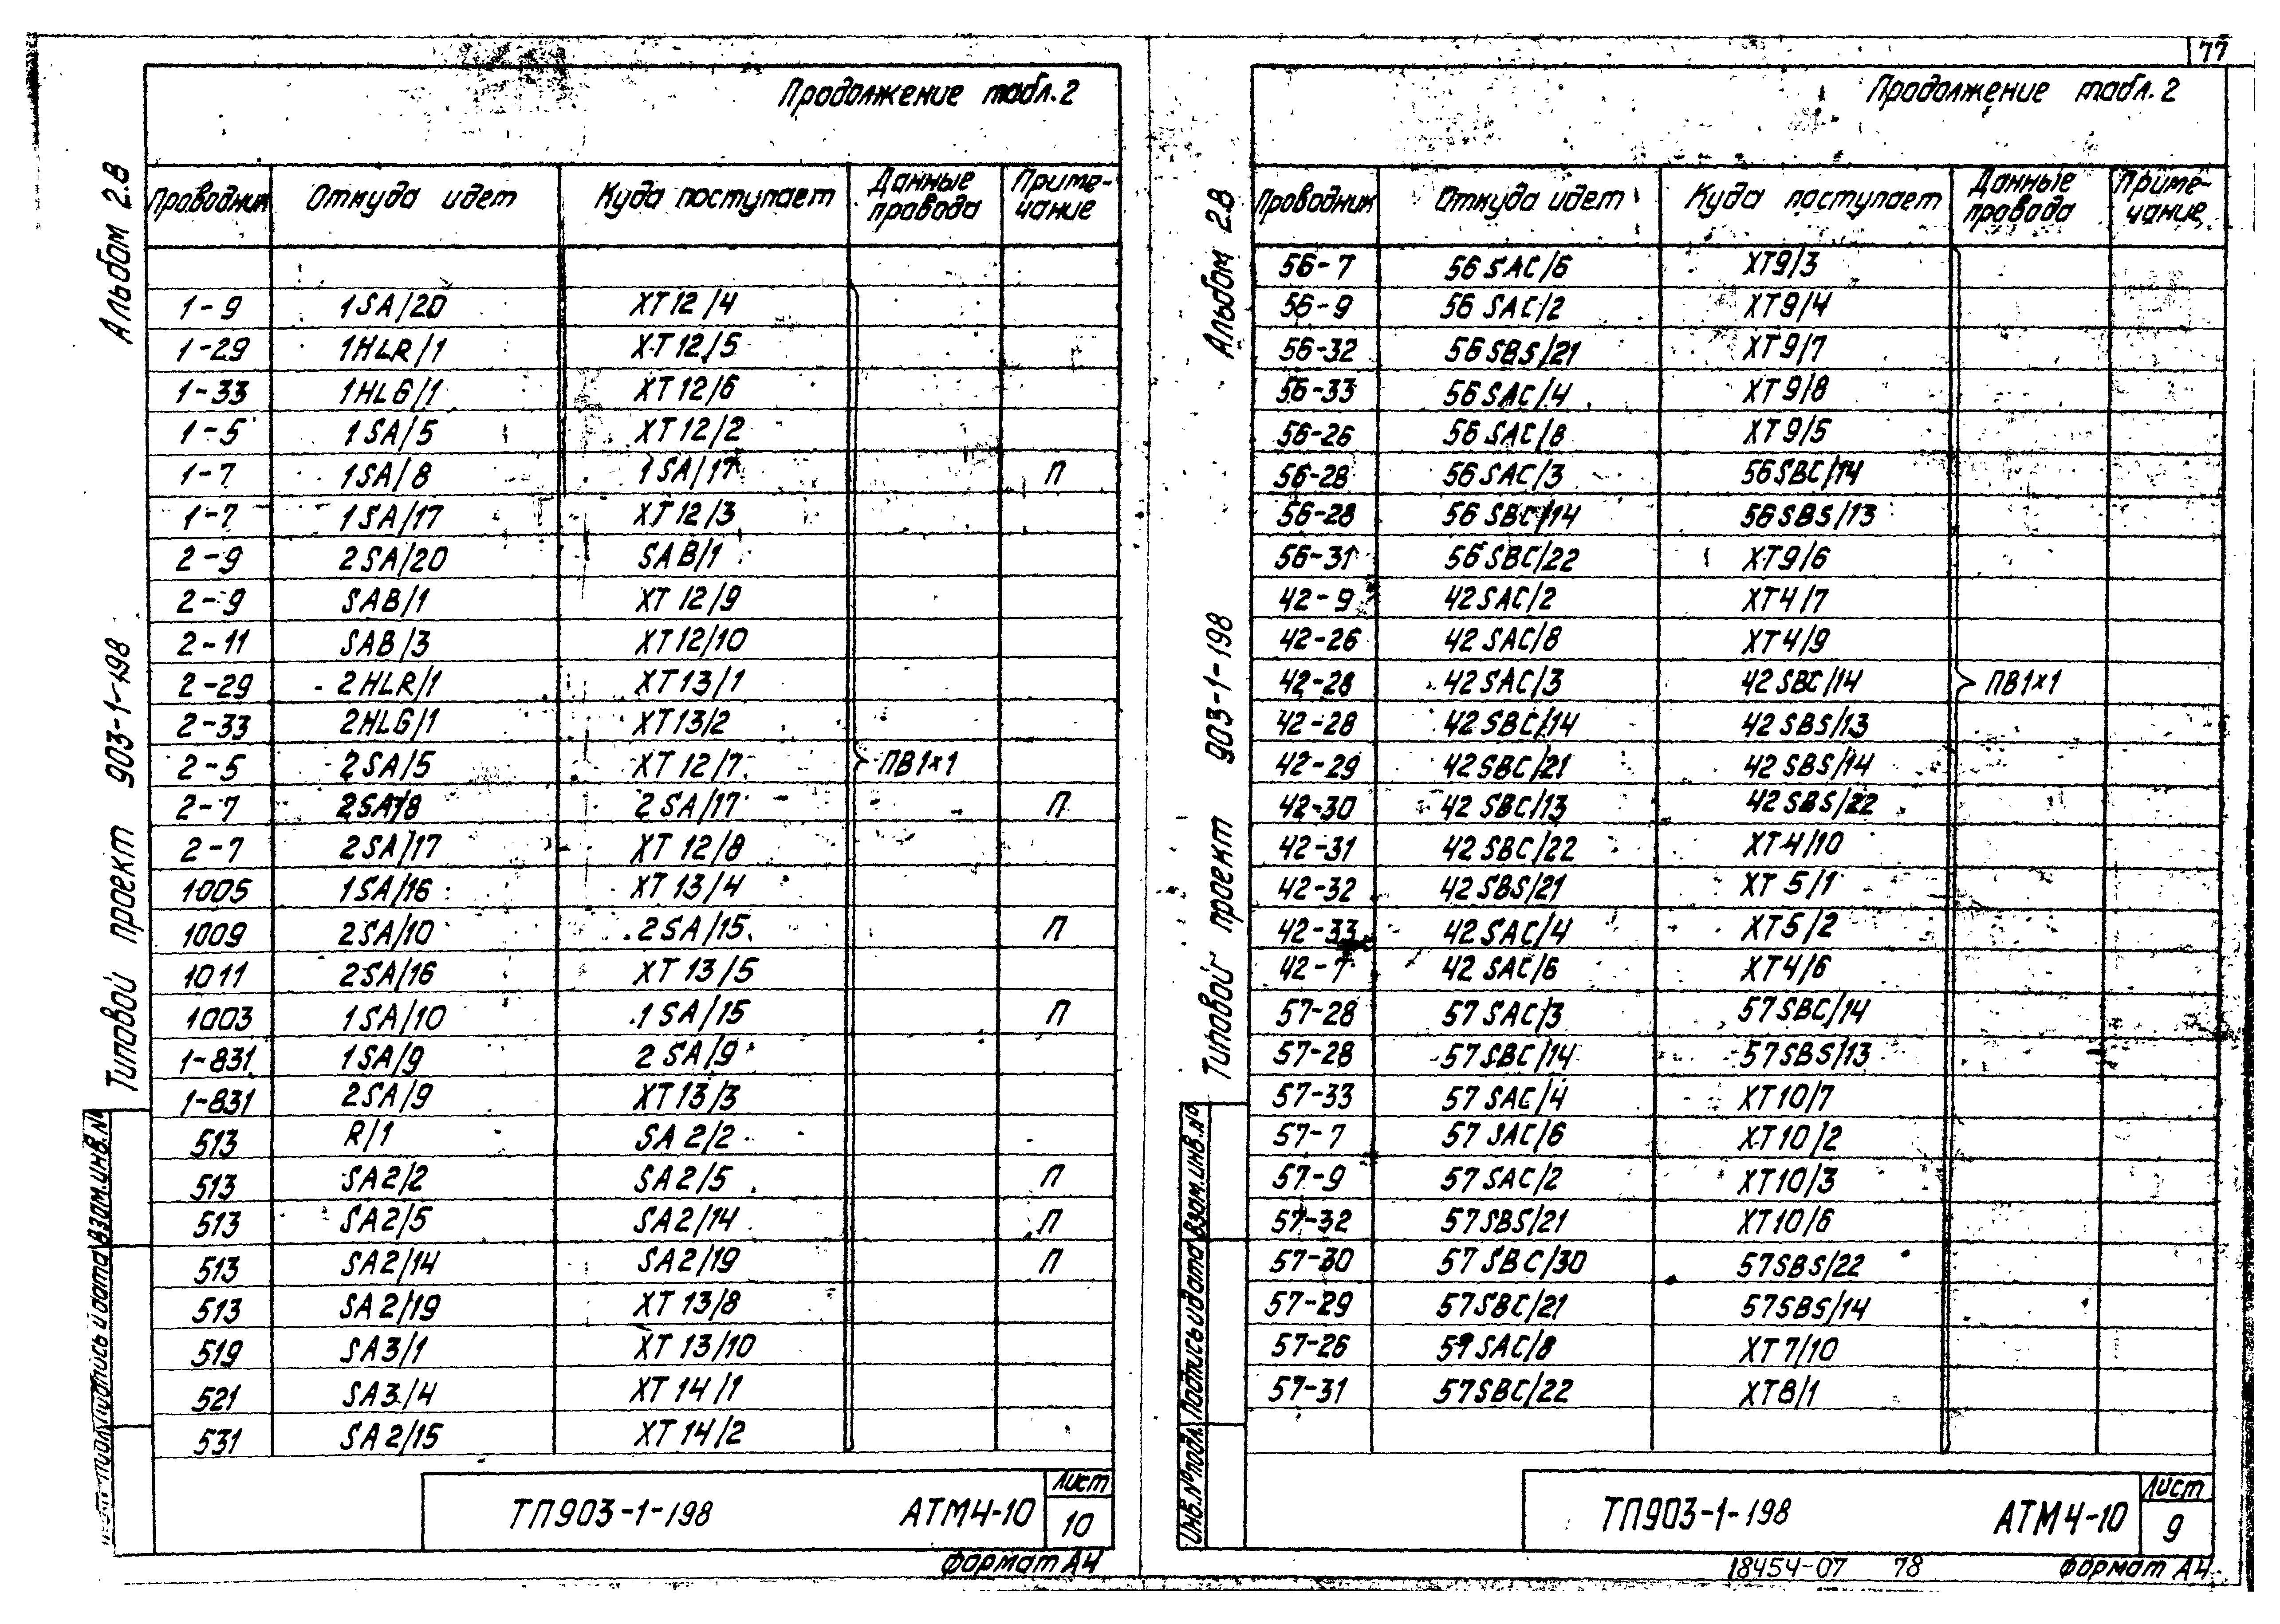 77
Продолжение табл.2
Альбом 2.8
Типовой проект 903-1-198
Проводник Откуда идет Куда поступает Данные провода Приме-чание
1-9 1SA/20 XT12/4
1-29 1HLR/1 XT12/5
1-33 1HLG/1 XT12/6
1-5 1SA/5 XT12/2
1-7 1SA/8 1SA/17 П
1-7 1SA/17 XT12/3
2-9 2SA/20 SAB/1
2-9 SAB/1 XT12/9
2-11 SAB/3 XT12/10
2-29 2HLR/1 XT13/1
2-33 2HLG/1 XT13/2
2-5 2SA/5 XT12/7 ПВ1х1
2-7 2SA/8 2SA/17 П
2-7 2SA/17 XT12/8
1005 1SA/16 XT13/4
1009 2SA/10 2SA/15 П
1011 2SA/16 XT13/5
1003 1SA/10 1SA/15 П
1-831 1SA/9 2SA/9
1-831 2SA/9 XT13/3
513 R/1 SA2/2
513 SA2/2 SA2/5 П
513 SA2/5 SA2/14 П
513 SA2/14 SA2/19 П
513 SA2/19 XT13/8
519 SA3/1 XT13/10
521 SA3/4 XT14/1
531 SA2/15 XT14/2
Взам.инв.№
Подпись и дата
ТП903-1-198 АТМ4-10 Лист 10
Формат А4
Продолжение табл.2
Альбом 2.8
Типовой проект 903-1-198
Проводник Откуда идет Куда поступает Данные провода Приме-чание
56-7 56SAC/6 XT9/3
56-9 56SAC/2 XT9/4
56-32 56SBS/21 XT9/7
56-33 56SAC/4 XT9/8
56-26 56SAC/8 XT9/5
56-28 56SAC/3 56SBC/14
56-28 56SBC/14 56SBS/13
56-31 56SBC/22 XT9/6
42-9 42SAC/2 XT4/7
42-26 42SAC/8 XT4/9
42-28 42SAC/3 42SBC/14 ПВ1х1
42-28 42SBC/14 42SBS/13
42-29 42SBC/21 42SBS/14
42-30 42SBC/13 42SBS/22
42-31 42SBC/22 XT4/10
42-32 42SBS/21 XT5/1
42-33 42SAC/4 XT5/2
42-7 42SAC/6 XT4/6
57-28 57SAC/3 57SBC/14
57-28 57SBC/14 57SBS/13
57-33 57SAC/4 XT10/7
57-7 57SAC/6 XT10/2
57-9 57SAC/2 XT10/3
57-32 57SBS/21 XT10/6
57-30 57SBC/30 57SBS/22
57-29 57SBC/21 57SBS/14
57-26 57SAC/8 XT7/10
57-31 57SBC/22 XT8/1
Взам.инв.№
Подпись и дата
Инв.№подл.
ТП903-1-198 АТМ4-10 Лист 9
18454-07 78 Формат А4